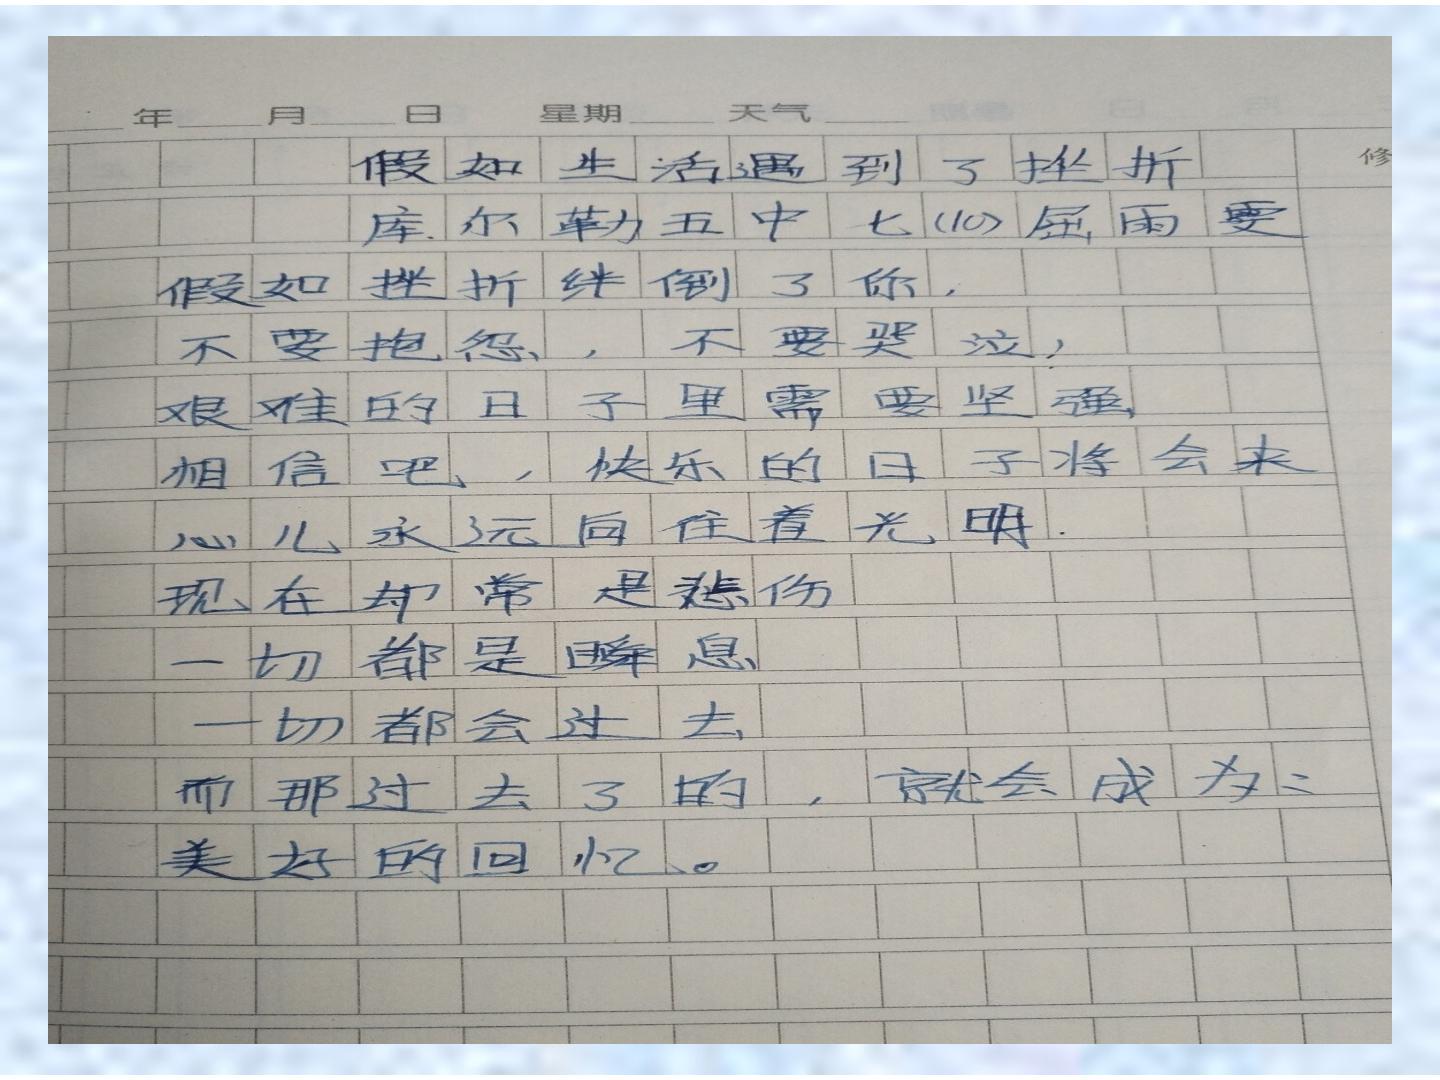 年 月 日 星期 天气
修
假如生活遇到了挫折
库尔勒五中七(10)屈雨雯
假如挫折绊倒了你，
不要抱怨，不要哭泣，
艰难的日子里需要坚强
相信吧，快乐的日子将会来
心儿永远向往着光明.
现在却常是悲伤
一切都是瞬息
一切都会过去
而那过去了的，就会成为
美好的回忆。